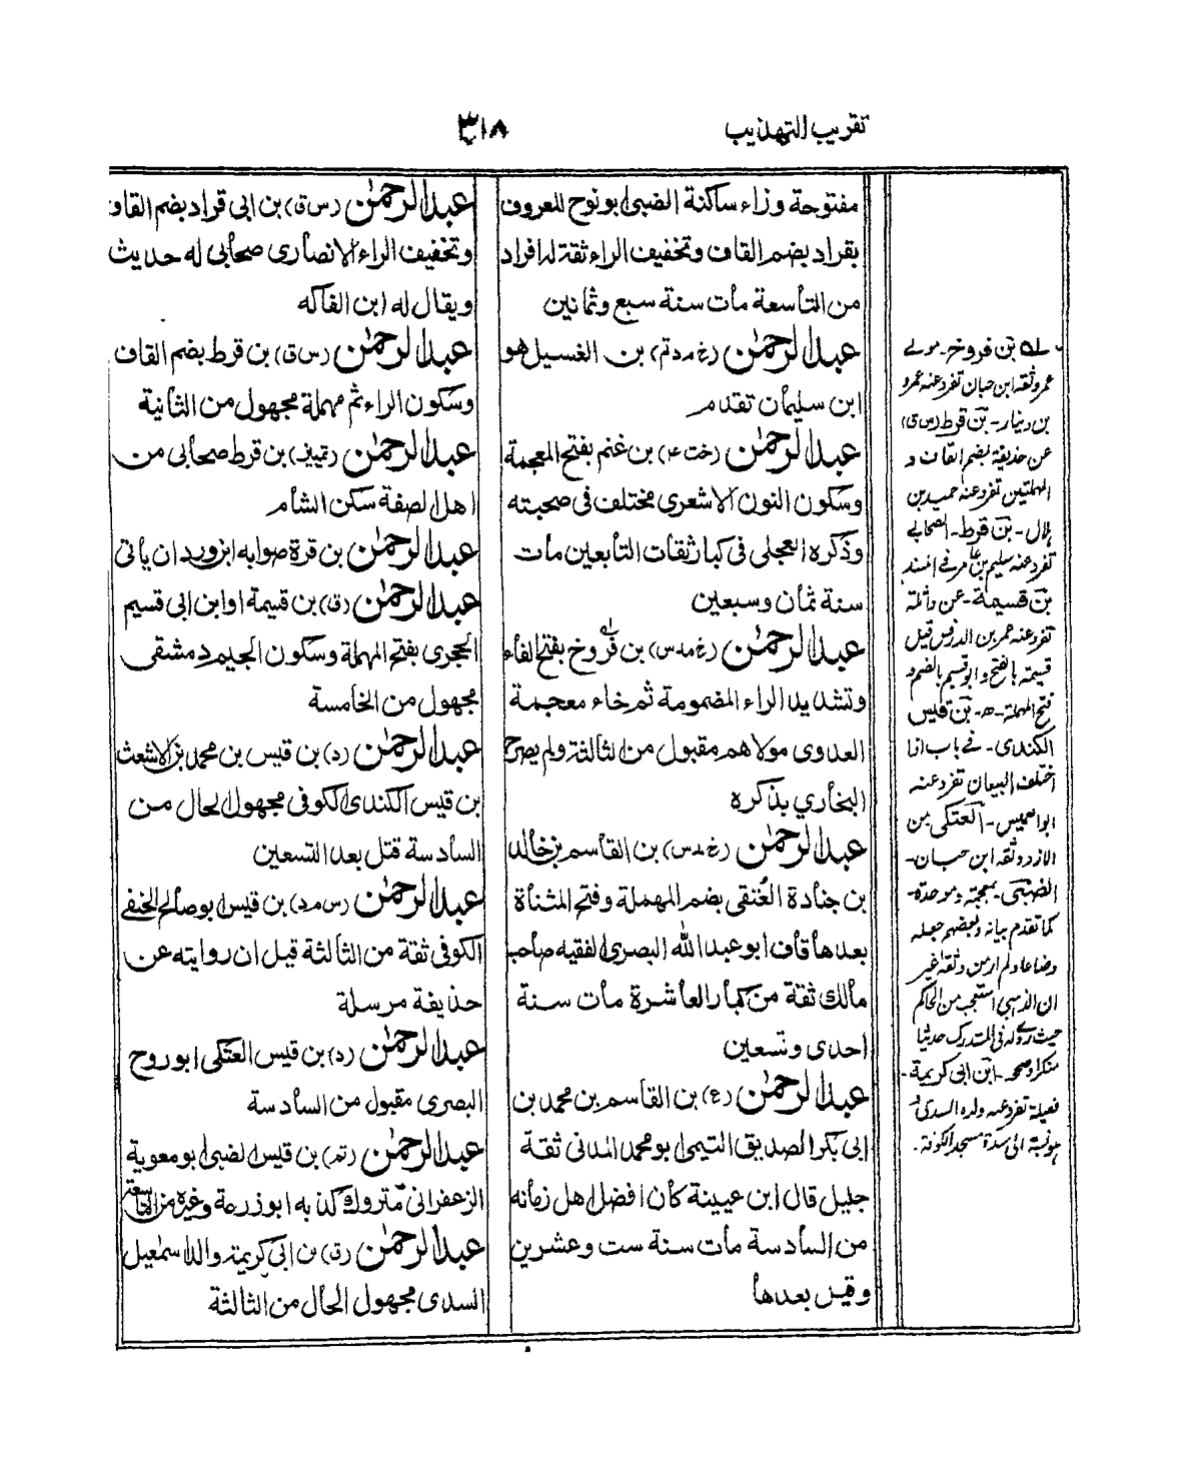 تقريب التهذيب
٣١٨
مفتوحة وزاء ساكنة الضبى ابو نوح المعروف
بقراد بضم القاف وتخفيف الراء ثقة له افراد
من التاسعة مات سنة سبع وثمانين
عبد الرحمٰن (خ م د تم) بن الغسيل هو
ابن سليمان تقدم
عبد الرحمٰن (خت ٤) بن غنم بفتح المعجمة
وسكون النون الاشعرى مختلف فى صحبته
وذكره العجلى فى كبار ثقات التابعين مات
سنة ثمان وسبعين
عبد الرحمٰن (خ مد س) بن فروخ بفتح الفاء
وتشديد الراء المضمومة ثم خاء معجمة
العدوى مولاهم مقبول من الثالثة ولم يصرح
البخاري بذكره
عبد الرحمٰن (خ مد س) بن القاسم بن خالد
بن جنادة العُتقى بضم المهملة وفتح المثناة
بعدها قاف ابو عبد الله البصرى الفقيه صاحب
مالك ثقة من كبار العاشرة مات سنة
احدى وتسعين
عبد الرحمٰن (ع) بن القاسم بن محمد بن
ابى بكر الصديق التيمى ابو محمد المدنى ثقة
جليل قال ابن عيينة كان افضل اهل زمانه
من السادسة مات سنة ست وعشرين
وقيل بعدها
عبد الرحمٰن (س ق) بن ابى قراد بضم القاف
وتخفيف الراء الانصارى صحابى له حديث
ويقال له ابن الفاكه
عبد الرحمٰن (س ق) بن قرط بضم القاف
وسكون الراء ثم مهملة مجهول من الثانية
عبد الرحمٰن (تمييز) بن قرط صحابى من
اهل الصفة سكن الشام
عبد الرحمٰن بن قرة صوابه ابن وردان ياتى
عبد الرحمٰن (ق) بن قسيمة او ابن ابى قسيم
الحجرى بفتح المهملة وسكون الجيم دمشقى
مجهول من الخامسة
عبد الرحمٰن (د) بن قيس بن محمد بن الاشعث
بن قيس الكندى الكوفى مجهول الحال من
السادسة قتل بعد التسعين
عبد الرحمٰن (س م د) بن قيس ابو صالح الحنفى
الكوفى ثقة من الثالثة قيل ان روايته عن
حذيفة مرسلة
عبد الرحمٰن (د) بن قيس العتكى ابو روح
البصرى مقبول من السادسة
عبد الرحمٰن (تم) بن قيس الضبى ابو معوية
الزعفرانى متروك كذبه ابو زرعة وغيره من التاسعة
عبد الرحمٰن (ق) بن ابى كريمة والد اسمٰعيل
السدى مجهول الحال من الثالثة
له بن فروخ - مولے
عمر وثقه ابن حبان تفرد عنه عمرو
بن دينار - بن قرط (س ق)
عن حذيفة بضم القاف و
المهملتين تفرد عنه حميد بن
هلال - بن قرط - الصحابے
تفرد عنه سليم بن عامر فے المسند
بن قسيمة - عن واثلة
تفرد عنه عمر بن الدرفس قيل
قسيمة بالفتح و ابو قسيم بالضم و
فتح المهملة - ه - بن قيس
الكندى - فے باب اذا
اختلف البيعان تفرد عنه
ابو العميس - العتكى من
الازد وثقه ابن حبان -
الضبى - بمعجمة و موحدة -
كما تقدم بيانه وبعضهم جعله
وضاعا ولم ار من وثقه غير
ان الذهبى استعجب من الحاكم
حيث روى له فى المستدرك حديثا
منكرا وصححه - ابن ابى كريمة -
تفرد عنه ولده السدى و
نسبة الى سدة مسجد الكوفة -